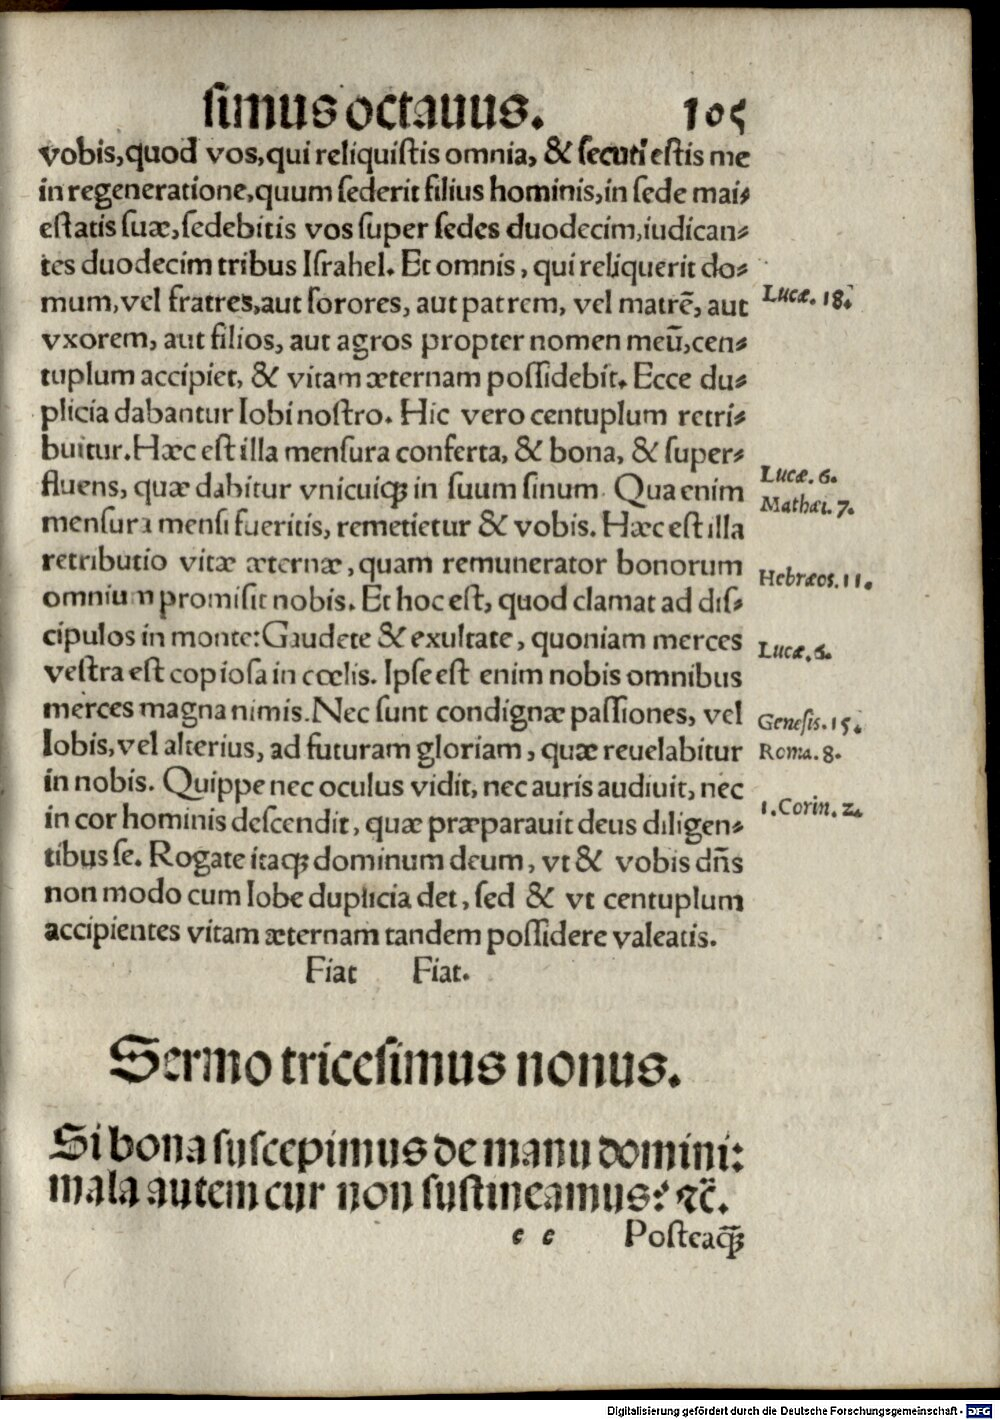 simus octauus. 105
vobis, quod vos, qui reliquistis omnia, & secuti estis me
in regeneratione, quum sederit filius hominis, in sede mai⸗
estatis suæ, sedebitis vos super sedes duodecim, iudican⸗
tes duodecim tribus Israhel. Et omnis, qui reliquerit do⸗
mum, vel fratres, aut sorores, aut patrem, vel matrẽ, aut
Lucæ. 18.
vxorem, aut filios, aut agros propter nomen meũ, cen⸗
tuplum accipiet, & vitam æternam possidebit. Ecce du⸗
plicia dabantur Iobi nostro. Hic vero centuplum retri⸗
buitur. Hæc est illa mensura conferta, & bona, & super⸗
Lucæ. 6.
fluens, quæ dabitur vnicuiqꝫ in suum sinum. Qua enim
Mathæi. 7.
mensura mensi fueritis, remetietur & vobis. Hæc est illa
retributio vitæ æternæ, quam remunerator bonorum
Hebræos. 11.
omnium promisit nobis. Et hoc est, quod clamat ad dis⸗
cipulos in monte: Gaudete & exultate, quoniam merces
Lucæ. 6.
vestra est copiosa in cœlis. Ipse est enim nobis omnibus
merces magna nimis. Nec sunt condignæ passiones, vel
Genesis. 15.
Iobis, vel alterius, ad futuram gloriam, quæ reuelabitur
Roma. 8.
in nobis. Quippe nec oculus vidit, nec auris audiuit, nec
1. Corin. 2.
in cor hominis descendit, quæ præparauit deus diligen⸗
tibus se. Rogate itaqꝫ dominum deum, vt & vobis dñs
non modo cum Iobe duplicia det, sed & vt centuplum
accipientes vitam æternam tandem possidere valeatis.
Fiat Fiat.
Sermo tricesimus nonus.
Si bona suscepimus de manu domini:
mala autem cur non sustineamus? ⁊c̃.
e e Posteaqꝫ̃
Digitalisierung gefördert durch die Deutsche Forschungsgemeinschaft - DFG